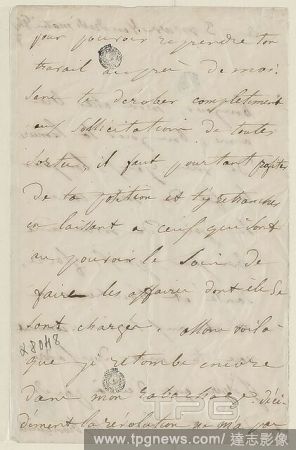 pour pouvoir reprendre ton
travail auprès de moi.
Sans te dérober complètement
aux sollicitations de toutes
sortes, il faut pourtant profiter
de ta position et t'y retrancher
en laissant à ceux qui sont
au pouvoir le soin de
faire les affaires dont ils se
sont chargés. allons voilà
que je retombe encore
dans mon rabachage déci
dément la révolution ne m'a pas
28048
TPG
www.tpgnews.com / 達志影像